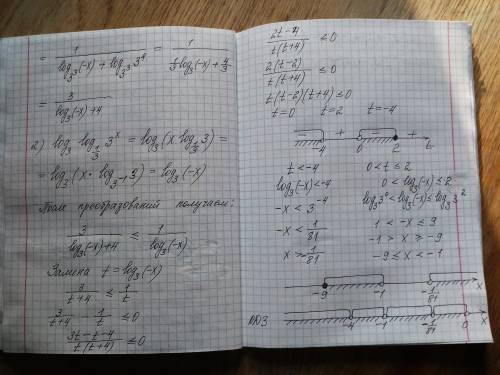 = 1/(log₃³(-x) + log₃³ 3⁴) = 1/(⅓log₃(-x) + 4/3) =
= 3/(log₃(-x)+4)
2) log₃ log_{1/3} 3ˣ = log₃(x log_{1/3} 3) =
= log₃(x · log₃₋₁ 3) = log₃(-x)
После преобразований получаем:
3/(log₃(-x)+4) ≤ 1/log₃(-x)
Замена t = log₃(-x)
3/(t+4) ≤ 1/t
3/(t+4) - 1/t ≤ 0
(3t-t-4)/(t(t+4)) ≤ 0
(2t-4)/(t(t+4)) ≤ 0
2(t-2)/(t(t+4)) ≤ 0
t(t-2)(t+4) ≤ 0
t=0 t=2 t=-4
- + - +
-4 0 2 t
t < -4 0 < t ≤ 2
log₃(-x) < -4 0 < log₃(-x) ≤ 2
-x < 3⁻⁴ log₃3⁰ < log₃(-x) ≤ log₃3²
-x < 1/81 1 < -x ≤ 9
x > -1/81 -1 > x ≥ -9
-9 ≤ x < -1
-9 -1 -1/81 x
ОДЗ -4 -1 -1/81 0 x